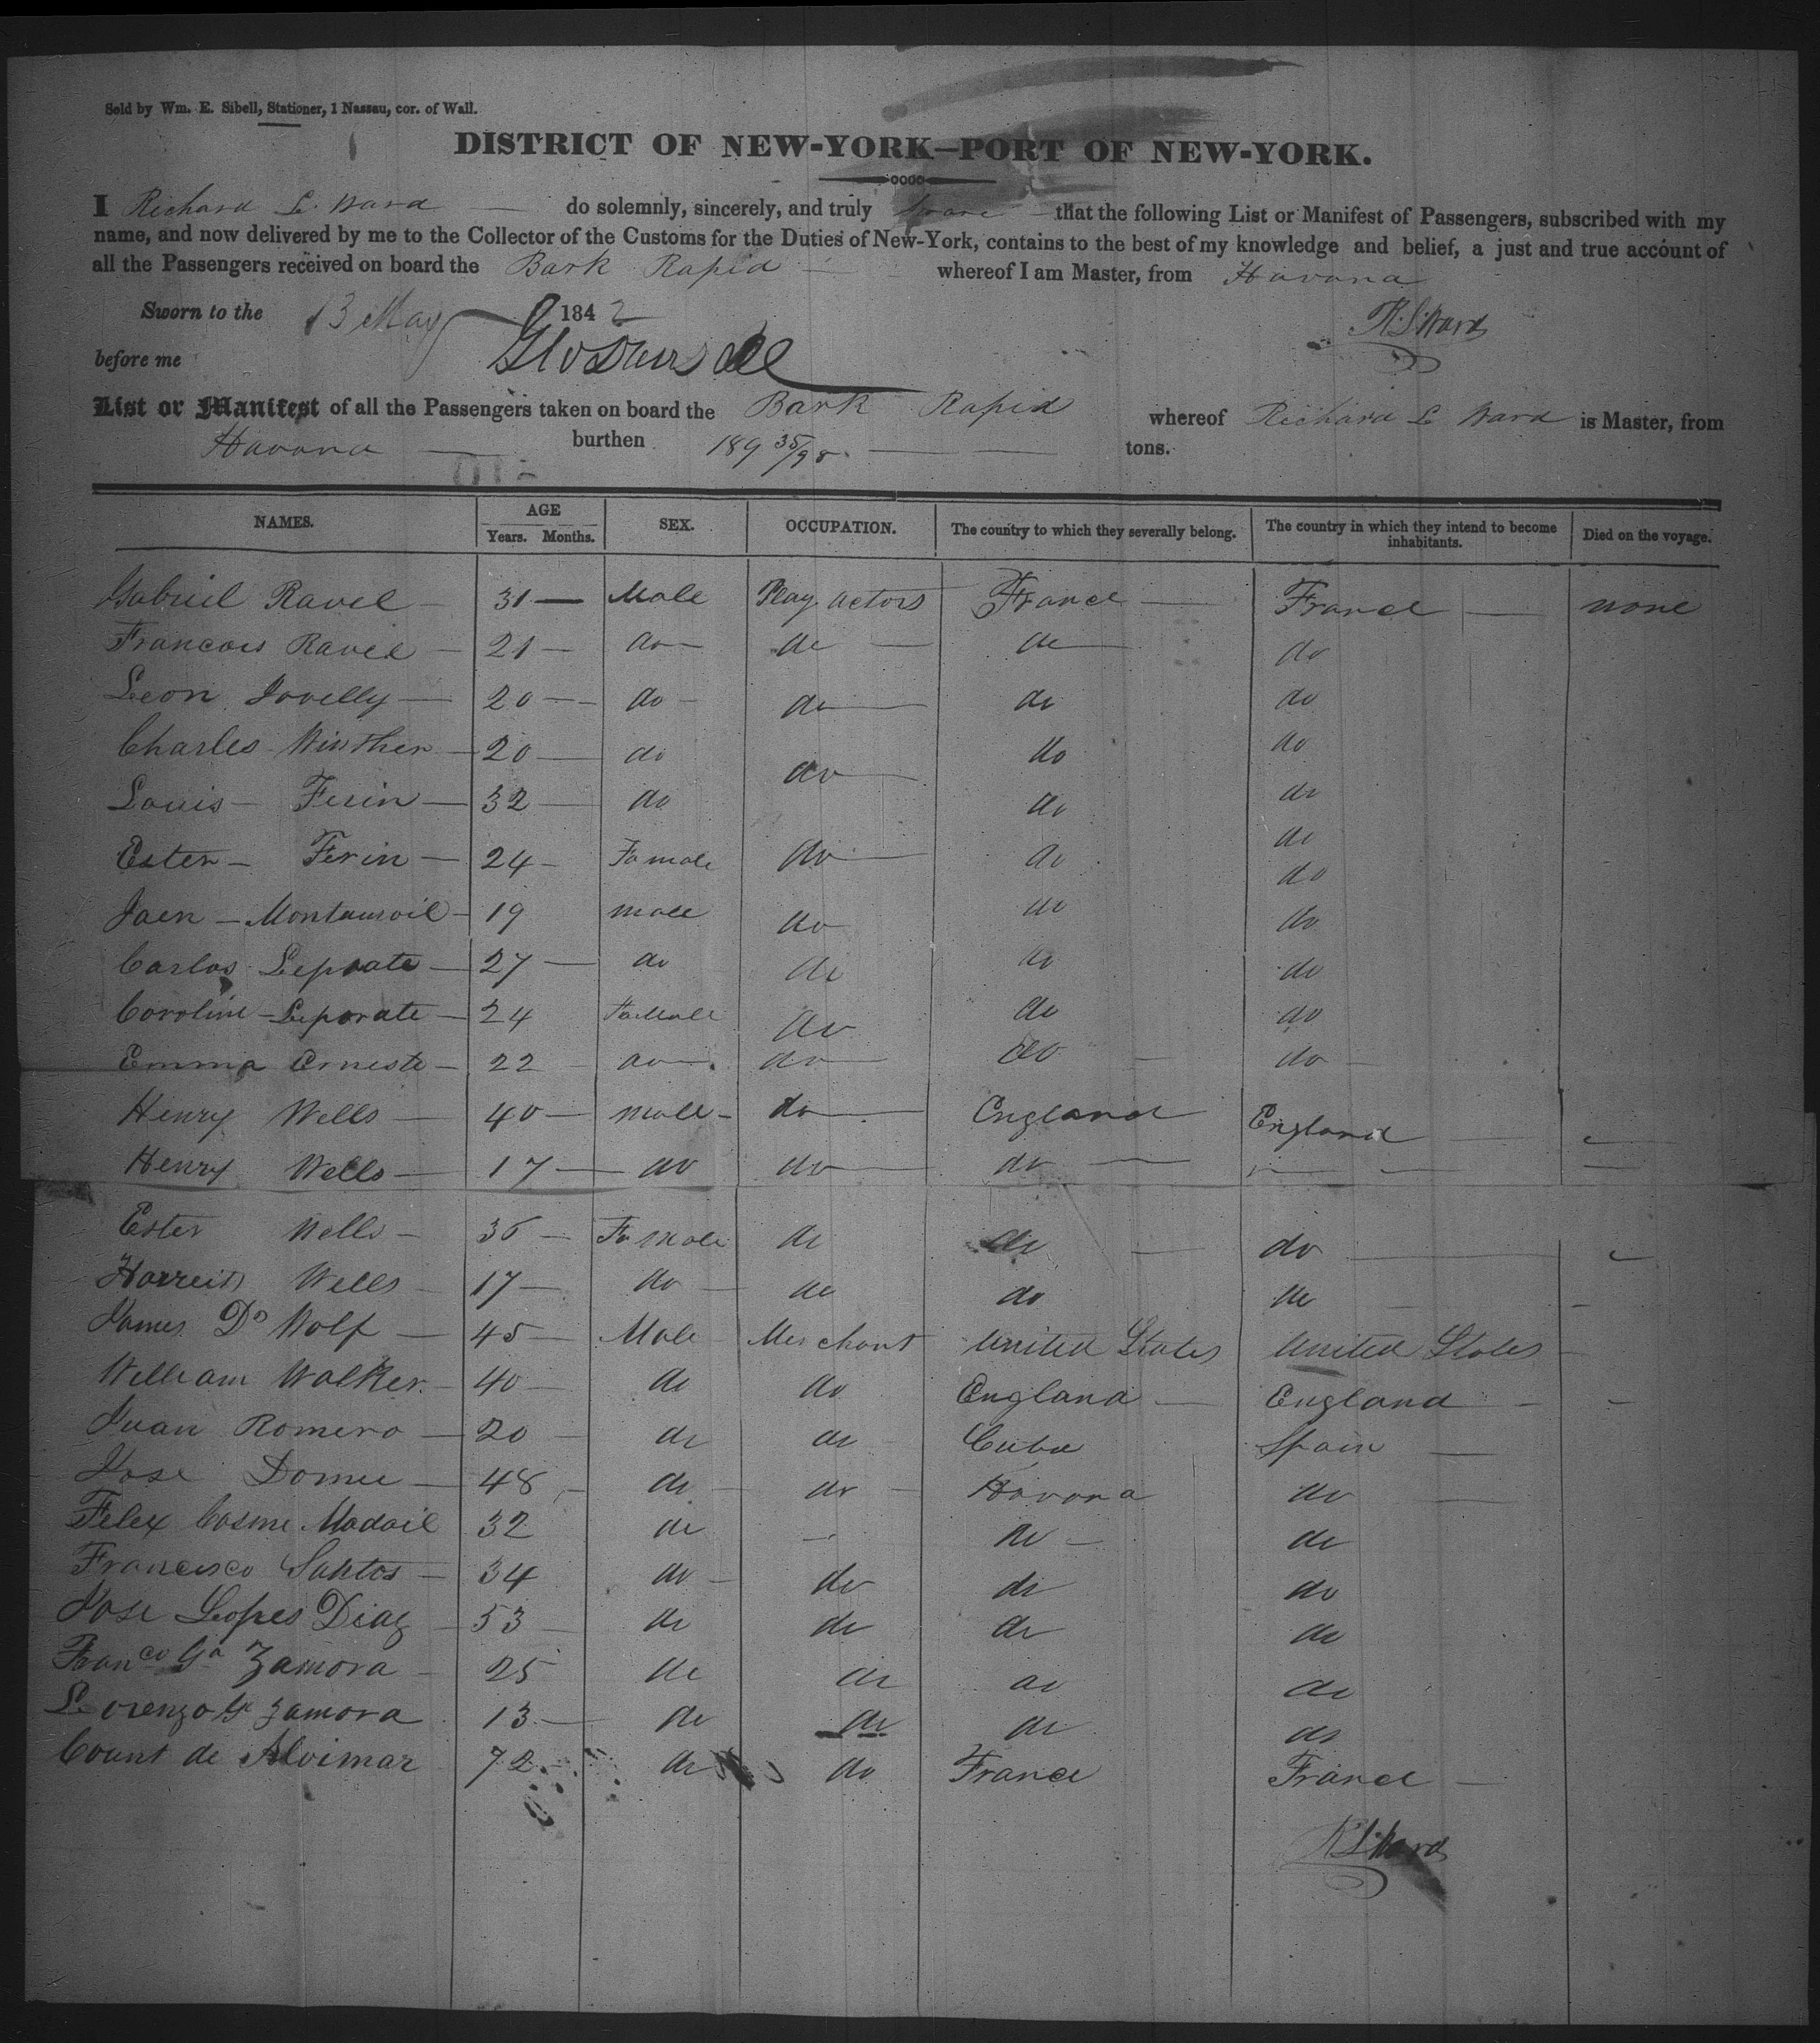 Sold by Wm. E. Sibell, Stationer, 1 Nassau, cor. of Wall.
DISTRICT OF NEW-YORK—PORT OF NEW-YORK.
I Richard L. Ward do solemnly, sincerely, and truly Sware that the following List or Manifest of Passengers, subscribed with my
name, and now delivered by me to the Collector of the Customs for the Duties of New-York, contains to the best of my knowledge and belief, a just and true account of
all the Passengers received on board the Bark Rapid whereof I am Master, from Havana
Sworn to the 13 May 1842
R. L. Ward
before me
List or Manifest of all the Passengers taken on board the Bark Rapid whereof Richard L Ward is Master, from
Havana burthen 189 35/95 tons.
NAMES. AGE Years. Months. SEX. OCCUPATION. The country to which they severally belong. The country in which they intend to become inhabitants. Died on the voyage.
Gabriel Ravel — 31 — Male Play actors France — France — none
Francois Ravel — 21 — do — do — do — do
Leon Jovelly — 20 — do — do — do do
Charles Winther — 20 — do do — do do
Louis — Ferin — 32 — do do do
Ester — Ferin — 24 — Female do — do do
do
Jaen — — 19 male do do do
Carlos Leporate — 27 — do do do do
Caroline — Leporate — 24 Female do do do
Emma Erneste — 22 do — do — do — do —
Henry Wells — 40 — male — do — England England —
Henry Wells — 17 — do do — do —
Ester Wells — 36 — Female do do — do —
Harreit Wells — 17 — do — do do do —
James Do Wolf — 45 — Male Merchant United States United States —
William Walker — 40 — do do England — England —
Juan Romero — 20 — do do Cuba Spain —
Jose — 48 — do — do — Havana do —
Felex Cosme Madail 32 do — do — do
Francisco Santos — 34 do — do do do
Jose Lopes Diaz — 53 — do do do do
Franco Ga Zamora — 25 do do do do
Lorenzo G Zamora 13 — do do do do
Count de Alvimar 72 — do do France France —
R L Ward